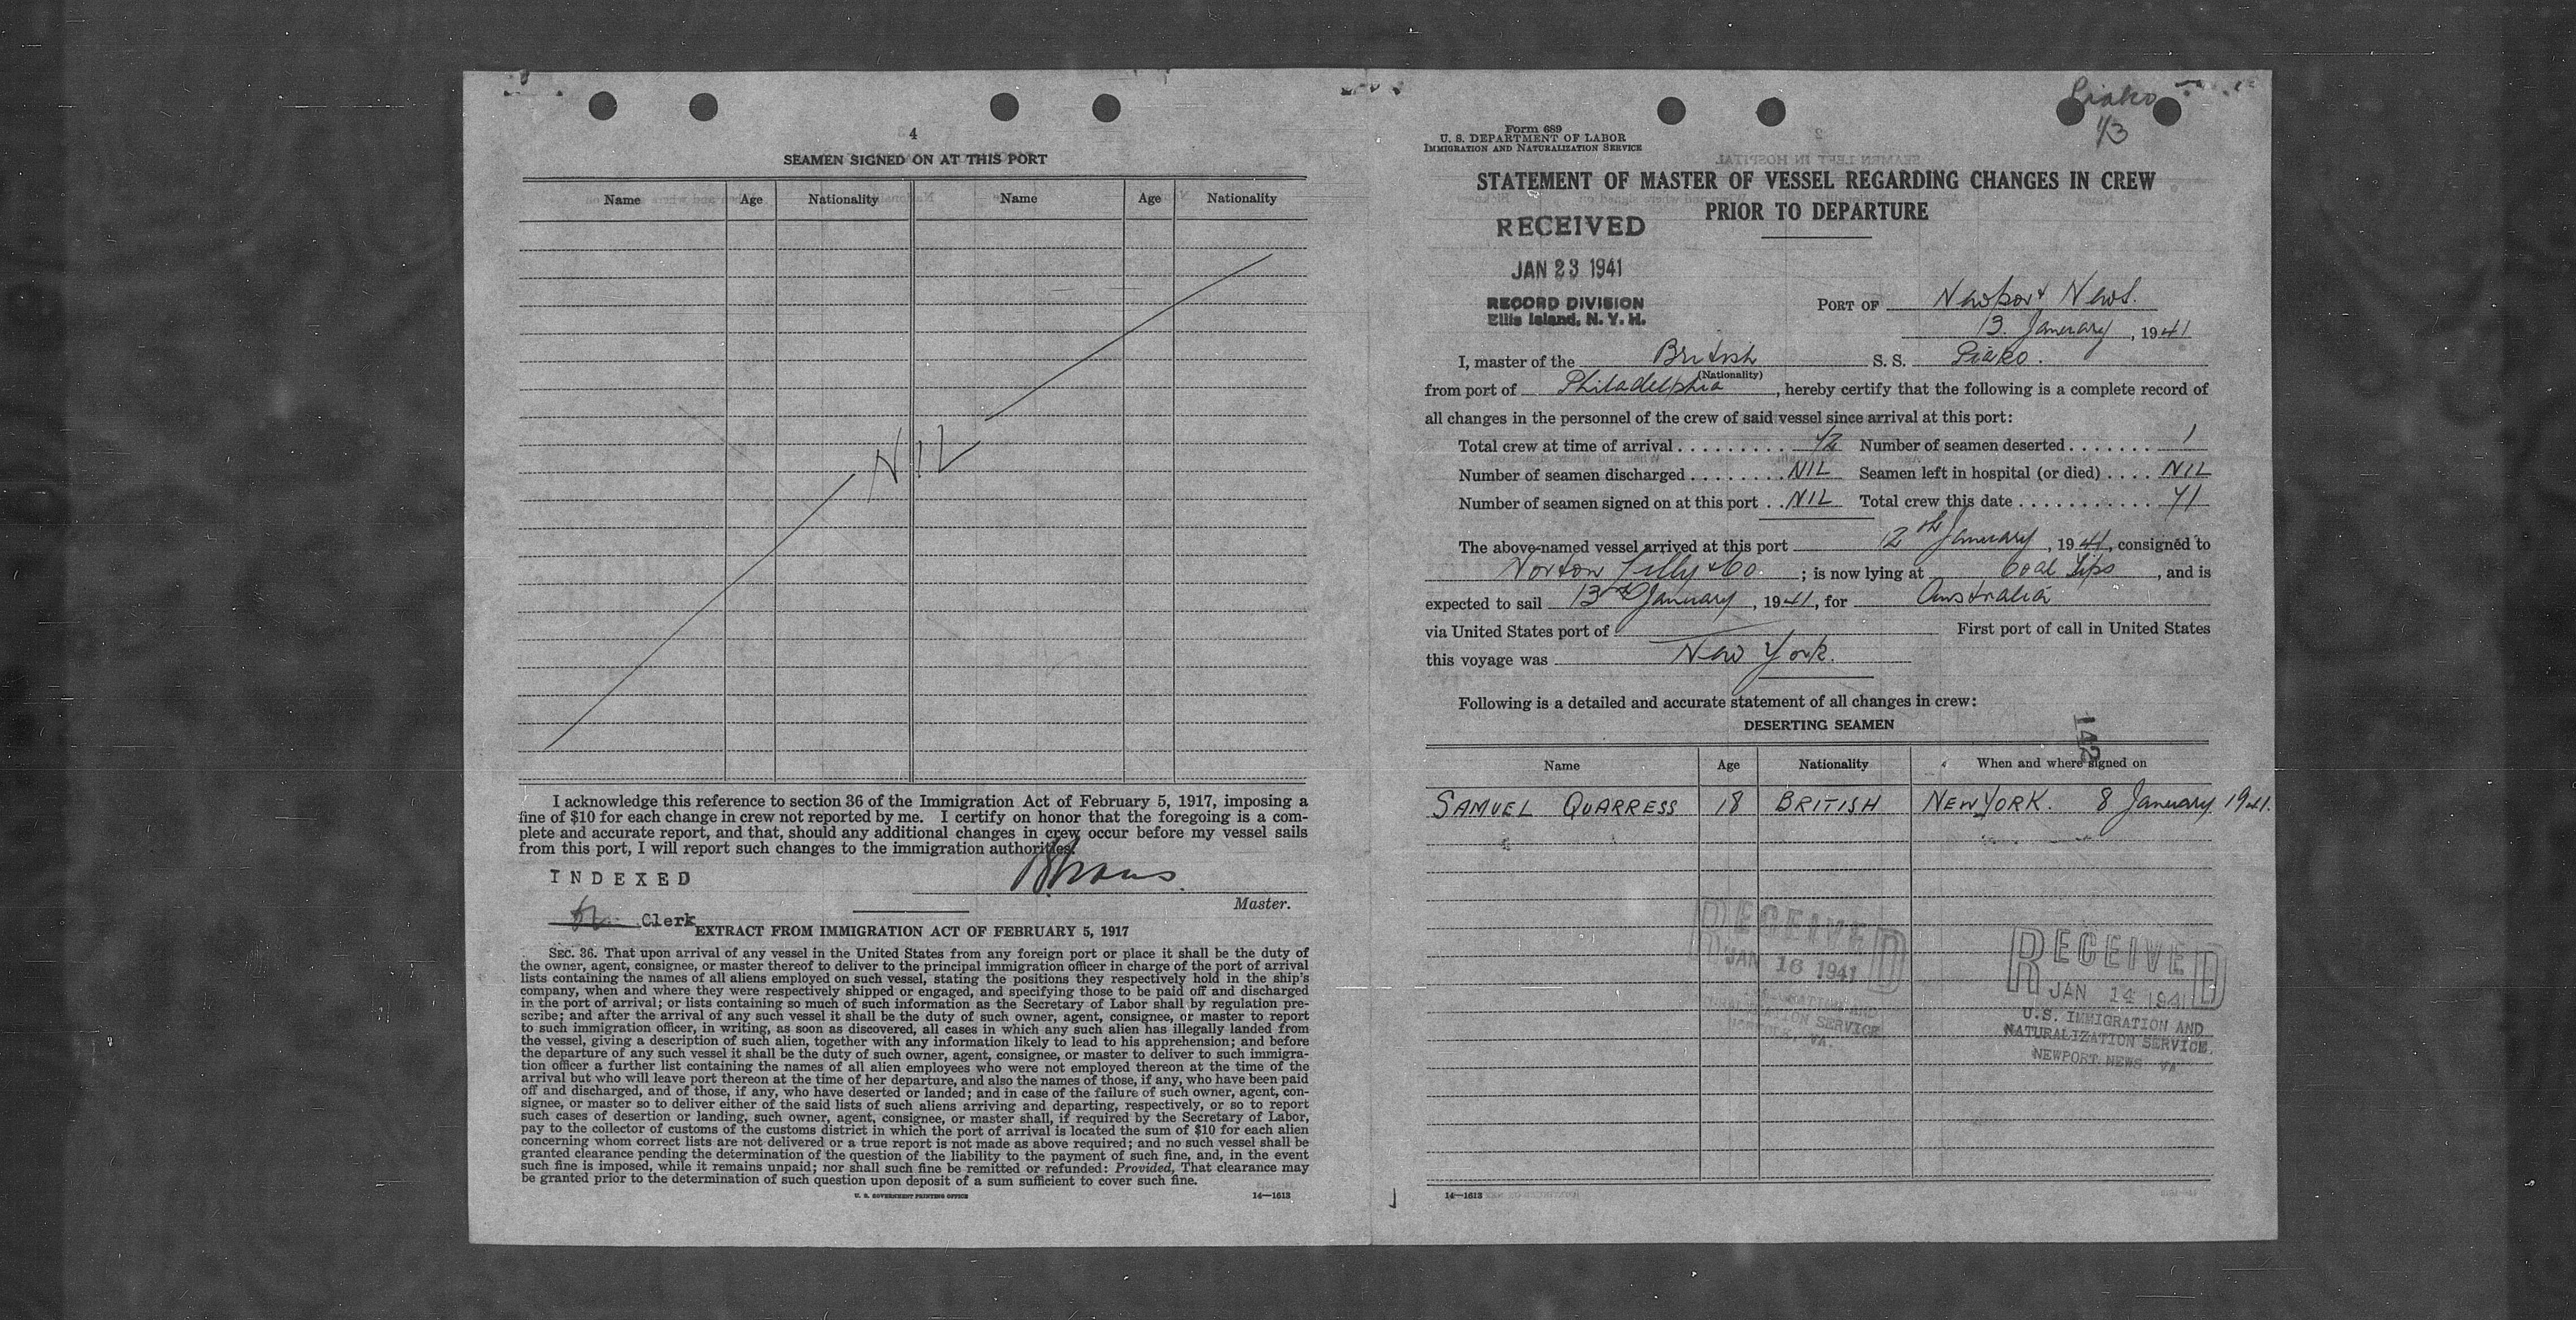 4
SEAMEN SIGNED ON AT THIS PORT
Name Age Nationality Name Age Nationality
NIL
I acknowledge this reference to section 36 of the Immigration Act of February 5, 1917, imposing a
fine of $10 for each change in crew not reported by me. I certify on honor that the foregoing is a com-
plete and accurate report, and that, should any additional changes in crew occur before my vessel sails
from this port, I will report such changes to the immigration authorities.
INDEXED
Master.
Clerk
EXTRACT FROM IMMIGRATION ACT OF FEBRUARY 5, 1917
SEC. 36. That upon arrival of any vessel in the United States from any foreign port or place it shall be the duty of
the owner, agent, consignee, or master thereof to deliver to the principal immigration officer in charge of the port of arrival
lists containing the names of all aliens employed on such vessel, stating the positions they respectively hold in the ship's
company, when and where they were respectively shipped or engaged, and specifying those to be paid off and discharged
in the port of arrival; or lists containing so much of such information as the Secretary of Labor shall by regulation pre-
scribe; and after the arrival of any such vessel it shall be the duty of such owner, agent, consignee, or master to report
to such immigration officer, in writing, as soon as discovered, all cases in which any such alien has illegally landed from
the vessel, giving a description of such alien, together with any information likely to lead to his apprehension; and before
the departure of any such vessel it shall be the duty of such owner, agent, consignee, or master to deliver to such immigra-
tion officer a further list containing the names of all alien employees who were not employed thereon at the time of the
arrival but who will leave port thereon at the time of her departure, and also the names of those, if any, who have been paid
off and discharged, and of those, if any, who have deserted or landed; and in case of the failure of such owner, agent, con-
signee, or master so to deliver either of the said lists of such aliens arriving and departing, respectively, or so to report
such cases of desertion or landing, such owner, agent, consignee, or master shall, if required by the Secretary of Labor,
pay to the collector of customs of the customs district in which the port of arrival is located the sum of $10 for each alien
concerning whom correct lists are not delivered or a true report is not made as above required; and no such vessel shall be
granted clearance pending the determination of the question of the liability to the payment of such fine, and, in the event
such fine is imposed, while it remains unpaid; nor shall such fine be remitted or refunded: Provided, That clearance may
be granted prior to the determination of such question upon deposit of a sum sufficient to cover such fine.
U. S. GOVERNMENT PRINTING OFFICE 14—1613
Piako
Form 689
U. S. DEPARTMENT OF LABOR
IMMIGRATION AND NATURALIZATION SERVICE
STATEMENT OF MASTER OF VESSEL REGARDING CHANGES IN CREW
PRIOR TO DEPARTURE
RECEIVED
JAN 23 1941
RECORD DIVISION
Ellis Island, N. Y. H.
PORT OF Newport News.
13. January, 1941
I, master of the British S. S. Piako.
(Nationality)
from port of Philadelphia, hereby certify that the following is a complete record of
all changes in the personnel of the crew of said vessel since arrival at this port:
Total crew at time of arrival 72 Number of seamen deserted 1
Number of seamen discharged NIL Seamen left in hospital (or died) NIL
Number of seamen signed on at this port NIL Total crew this date 71
The above-named vessel arrived at this port 12th January, 1941, consigned to
Norton Lilly & Co.; is now lying at Coal Tips, and is
expected to sail 13th January, 1941, for Australia
via United States port of First port of call in United States
this voyage was New York.
Following is a detailed and accurate statement of all changes in crew:
DESERTING SEAMEN
142
Name Age Nationality When and where signed on
SAMUEL QUARRESS 18 BRITISH NEW YORK. 8 January 1941.
RECEIVED
JAN 16 1941
RECEIVED
JAN 14 1941
U.S. IMMIGRATION AND
NATURALIZATION SERVICE
NEWPORT NEWS VA.
14—1613